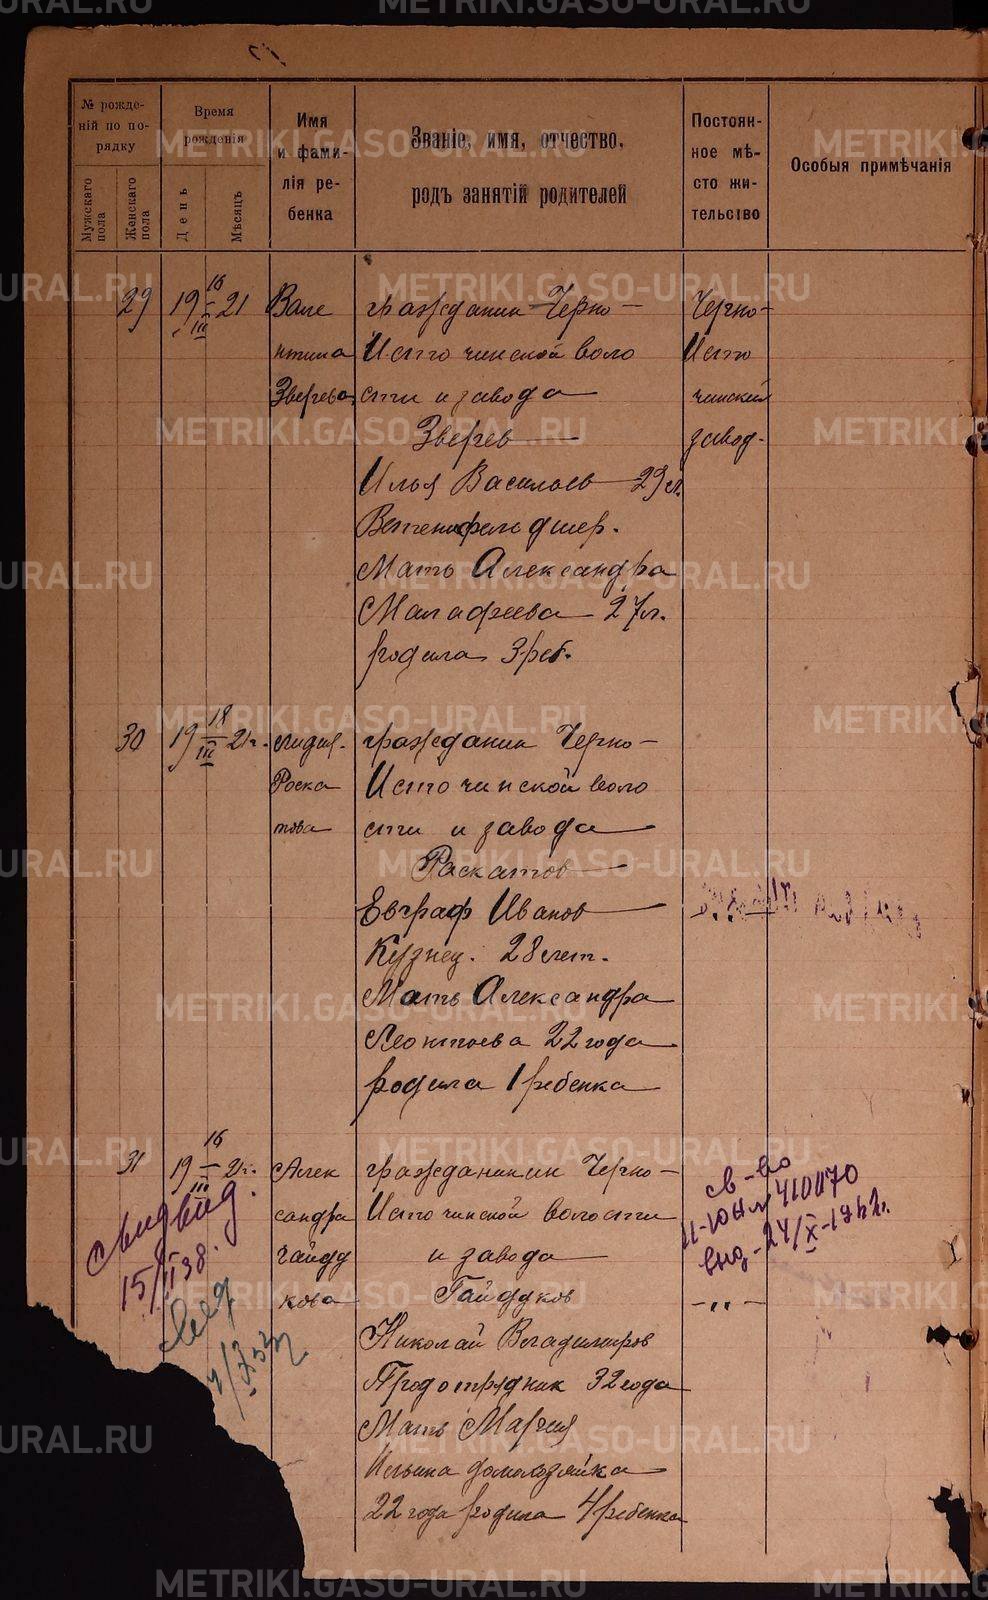 № рожде-
ній по по-
рядку
Мужскаго
пола
Женскаго
пола
Время
рожденія
День
Мѣсяцъ
Имя
и фами-
лія ре-
бенка
Званіе, имя, отчество,
родъ занятій родителей
Постоян-
ное мѣ-
сто жи-
тельсіво
Особыя примѣчанія
29
19 16/III 21
Вале
нтина
Зверева
гражданин Черно-
Источинской воло
сти и завода
Зверев
Илья Васильев 29 л.
Ветенфельдшер.
Мать Александра
Малафеева 27 л.
родила 3 реб.
Черно-
Исто
чинский
завод-
30
19 18/III 21 г.
Лидия-
Роска
това
гражданин Черно-
Источинской воло
сти и завода
Раскатов
Евграф Иванов
Кузнец. 28 лет.
Мать Александра
Леонтьева 22 года
родила 1 ребенка
31
19 16/III 21 г.
Алек
сандра
Гайдд
кова
гражданин Черно-
Источинской волости
и завода
Гайддков
Николай Владимиров
Продотрядник 32 года
Мать Мария
Ильина домохозяйка
22 года родила 4 ребенка
св-во
II-ЮН № 410170
выд-24/X-1942г.
-"-
15/II 38.
METRIKI.GASO-URAL.RU